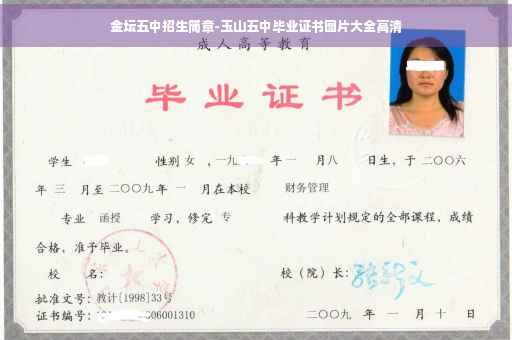 金坛五中招生简章-玉山五中毕业证书图片大全高清
成人高等教育
毕业证书
学生 性别 女 ，一九 年一 月八 日生，于二〇〇六
年 三 月至二〇〇九年 一 月在本校 财务管理
专业 函授 学习，修完 专 科教学计划规定的全部课程，成绩
合格，准予毕业。
校 名： 校（院）长：
批准文号：教计[1998]33号
证书编号： 06001310 二〇〇九 年 一 月 十 日